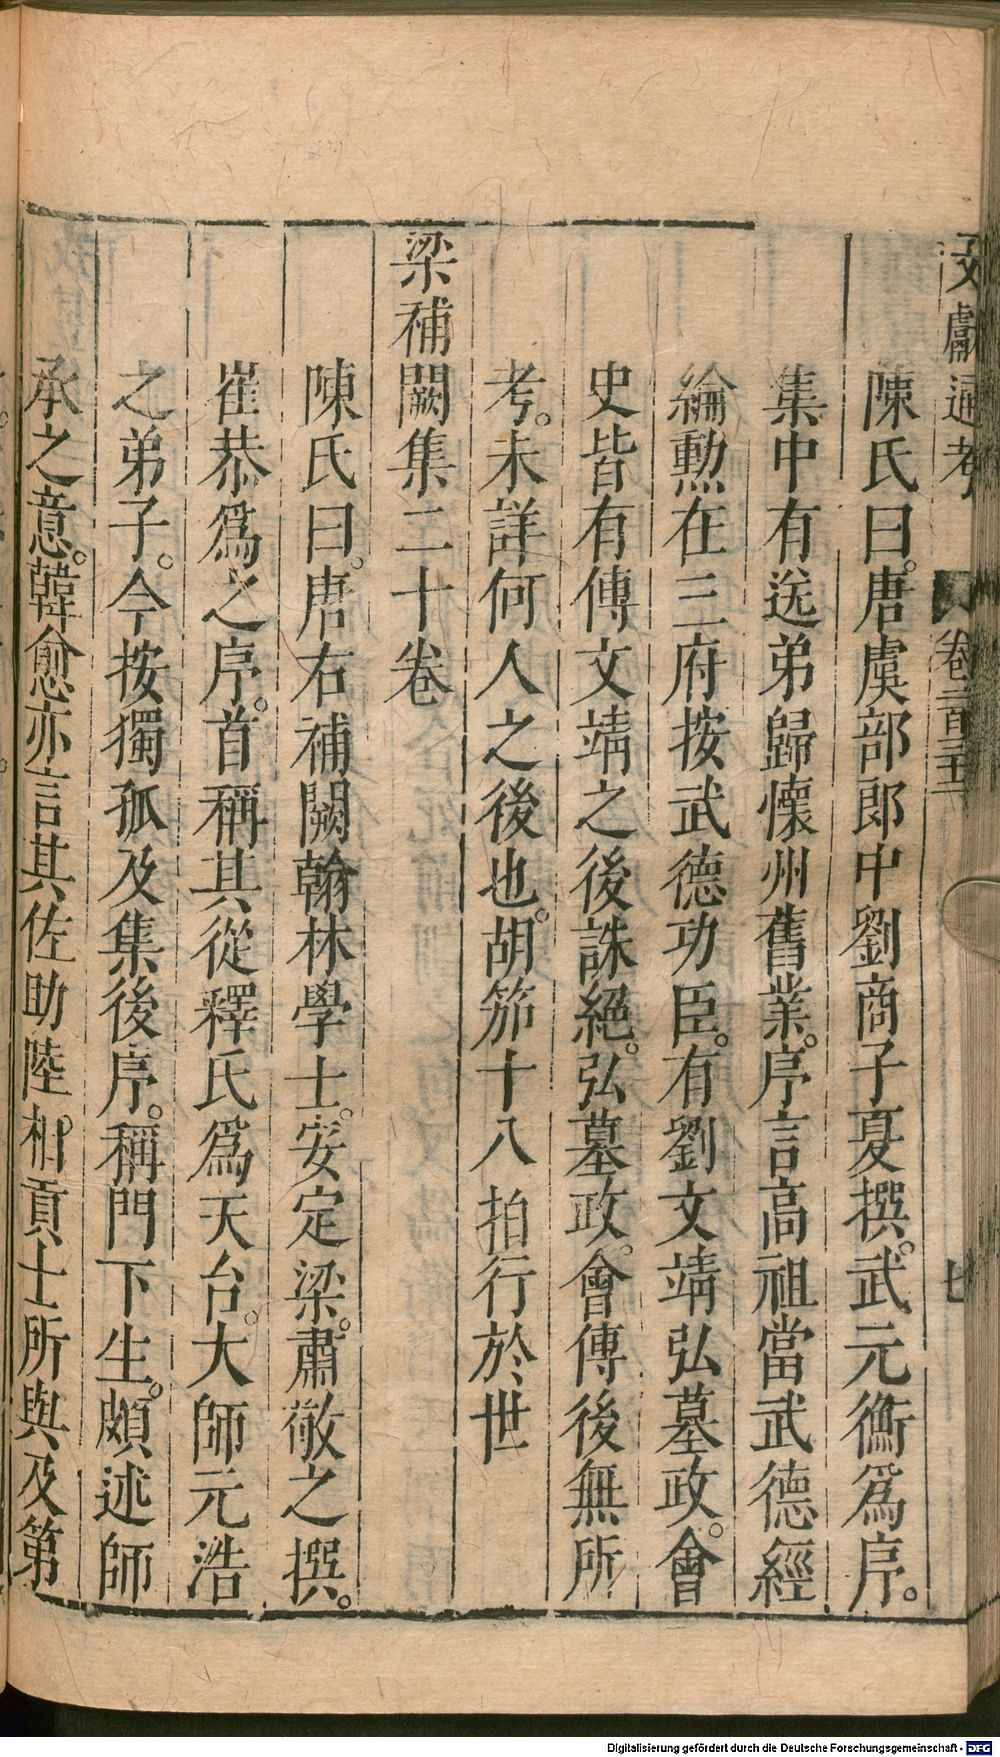 文獻通考 卷二百三十二 七
陳氏曰。唐虞部郎中劉商子夏撰。武元衡爲序。
集中有送弟歸懷州舊業。序言高祖當武德經
綸勲在三府按武德功臣。有劉文靖弘墓政。會
史皆有傳文靖之後誅絕。弘墓政。會傳後無所
考。未詳何人之後也。胡笳十八拍行於世
梁補闕集二十卷
陳氏曰。唐右補闕翰林學士。安定梁。肅敬之撰。
崔恭爲之序。首稱其從釋氏爲天台。大師元浩
之弟子。今按獨孤及集後序。稱門下生。頗述師
承之意。韓愈亦言其佐助陸相。貢士所與及第
Digitalisierung gefördert durch die Deutsche Forschungsgemeinschaft - DFG